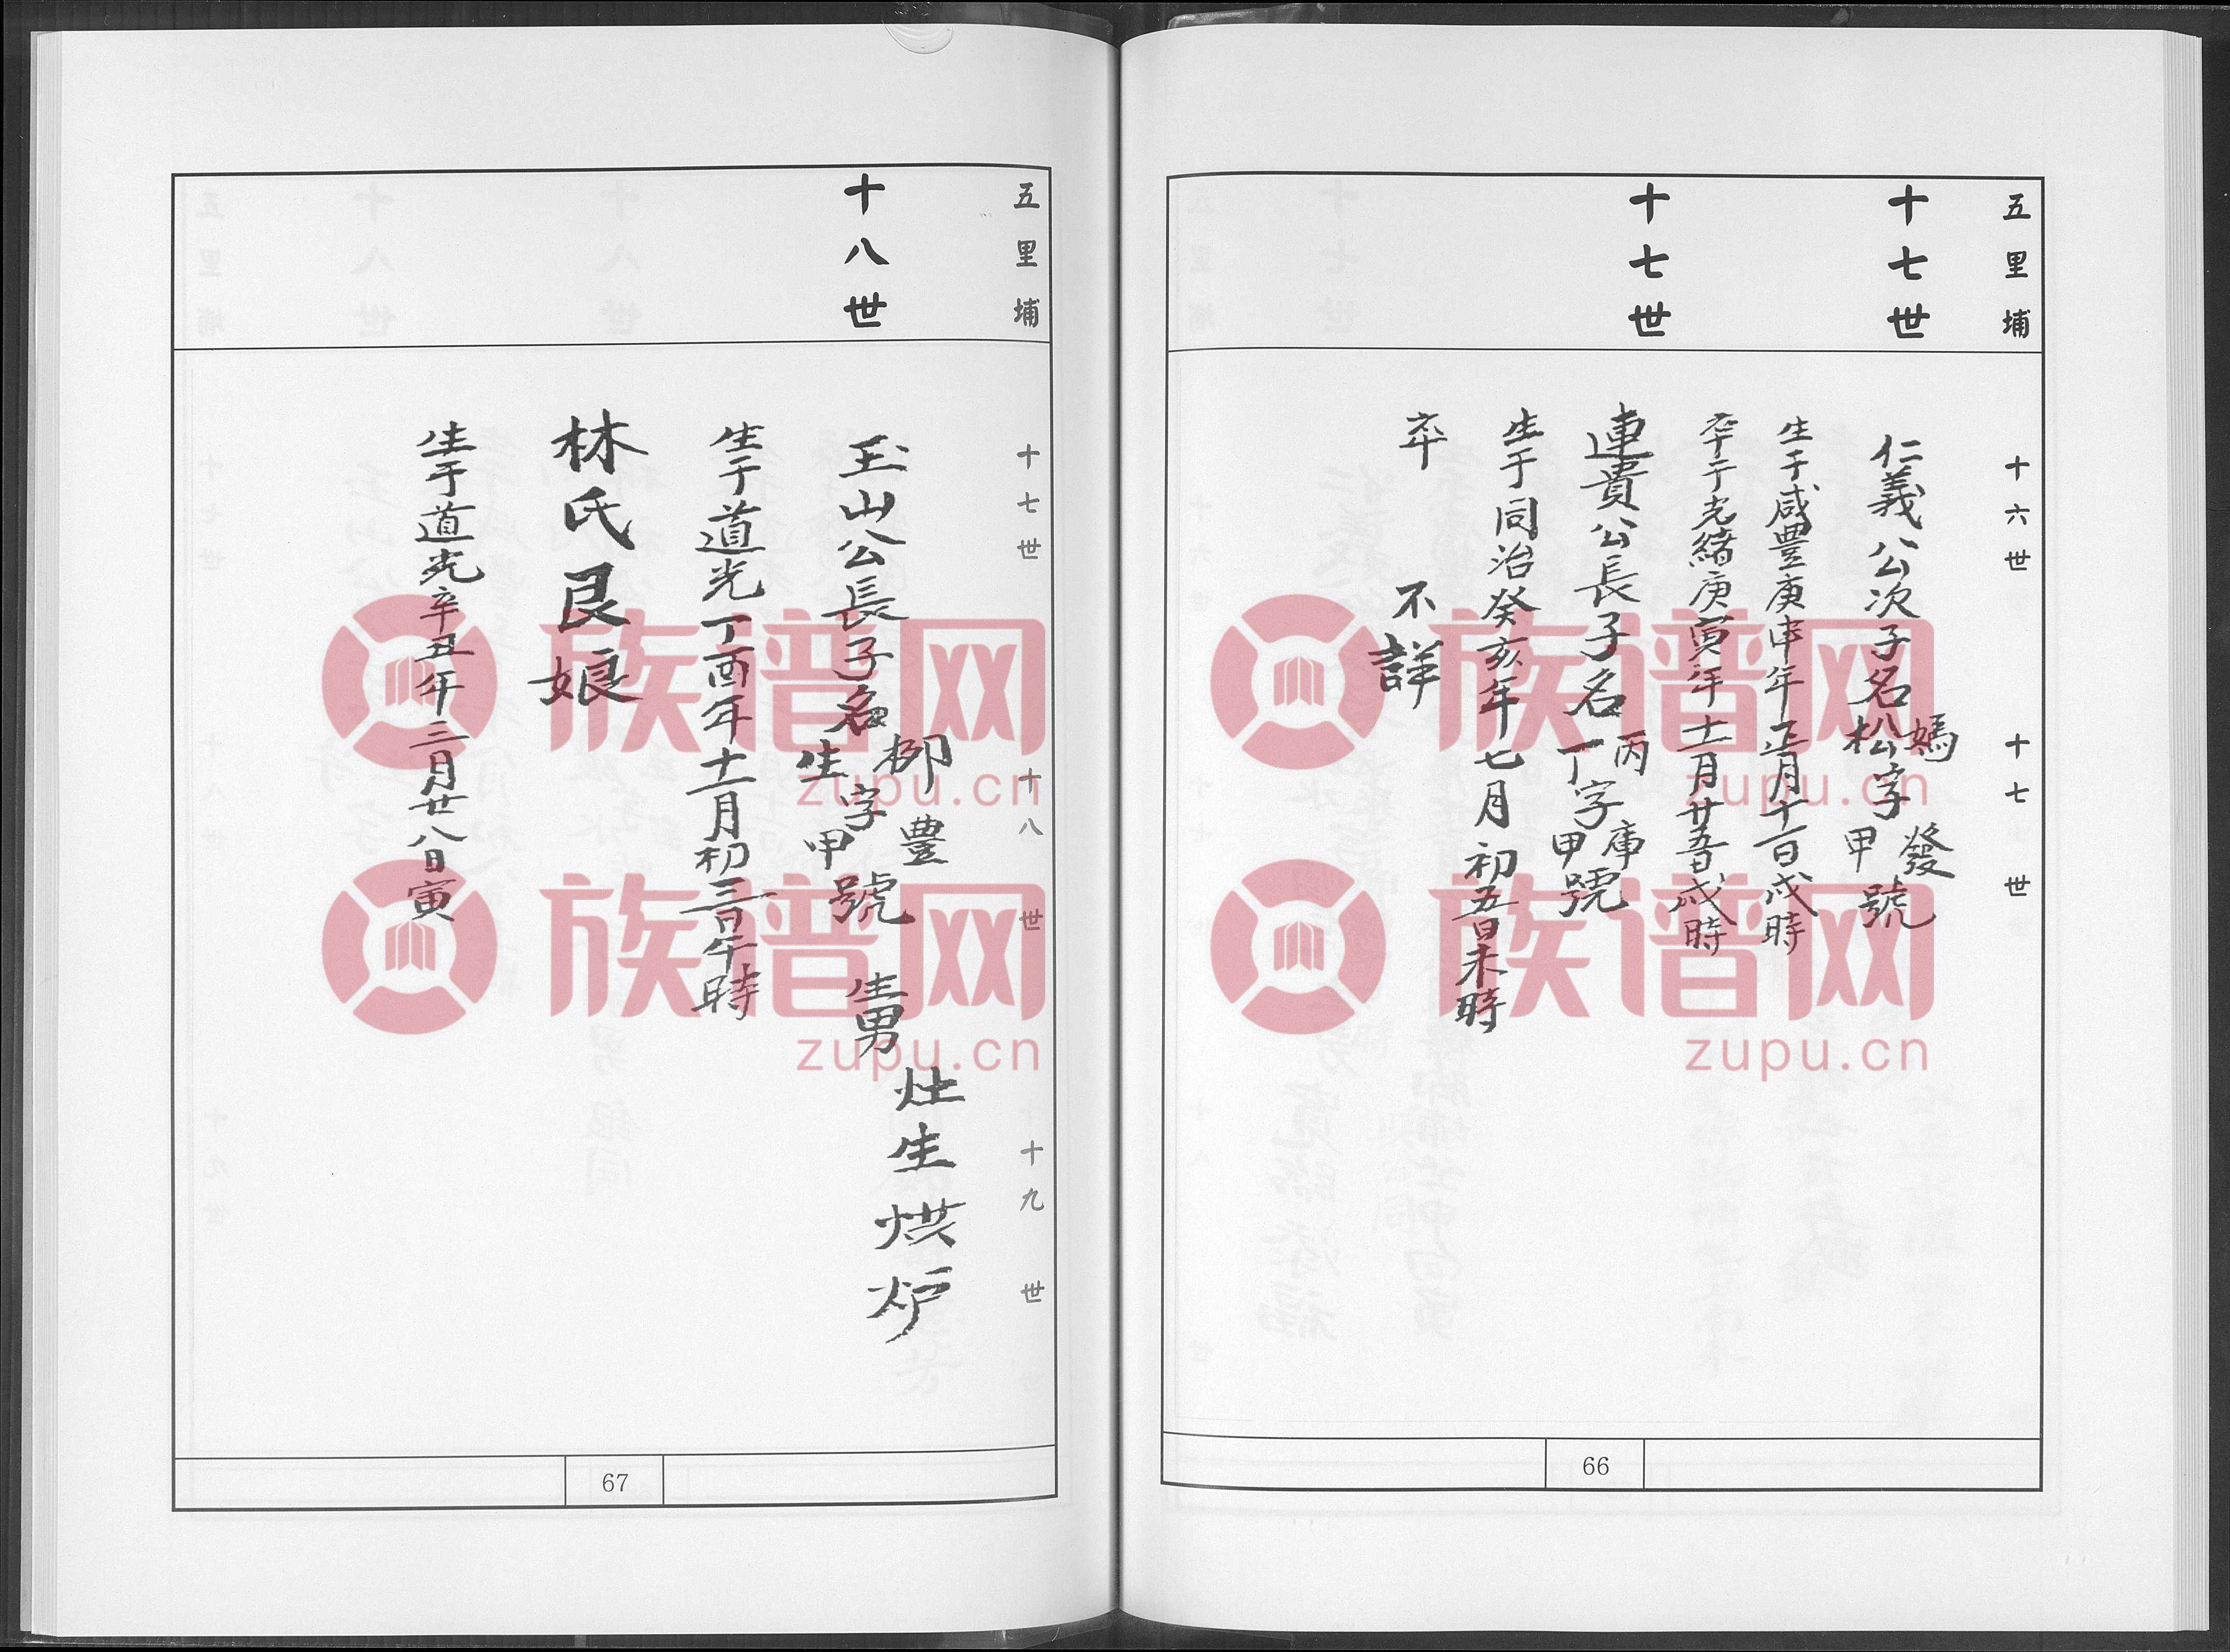 五里埔
十六世 十七世
十七世
仁義公次子名媽松字發甲號
生于咸豐庚申年正月十一日戌時
卒于光緒庚寅年十一月廿五日戌時
十七世
連貴公長子名丙丁字庫甲號
生于同治癸亥年七月初五日未時
卒 不詳
66
五里埔
十七世 十八世 十九世
十八世
玉山公長子名柳生字豐甲號 生男 灶生 烘炉
生于道光丁酉年十一月初三日午時
林氏艮娘
生于道光辛丑年三月廿八日寅
67
族谱网
zupu.cn
族谱网
zupu.cn
族谱网
zupu.cn
族谱网
zupu.cn